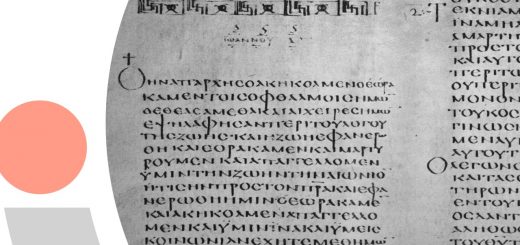 ΙΩΑΝΝΟΥ
ΟΗΝΑΠΑΡΧΗϹΟΑΚΗΚΟΑΜΕΝΟΕΩΡΑ
ΚΑΜΕΝΤΟΙϹΟΦΘΑΛΜΟΙϹΗΜΩ
ΟΕΘΕΑϹΑΜΕΘΑΚΑΙΑΙΧΕΙΡΕϹΗΜΩ
ΕΨΗΛΑΦΗϹΑΝΠΕΡΙΤΟΥΛΟΓΟΥ
ΤΗϹΖΩΗϹ·ΚΑΙΗΖΩΗΕΦΑΝΕΡΩ
ΘΗΚΑΙΕΟΡΑΚΑΜΕΝΚΑΙΜΑΡΤΥ
ΡΟΥΜΕΝΚΑΙΑΠΑΓΓΕΛΛΟΜΕΝ
ΥΜΙΝΤΗΝΖΩΗΝΤΗΝΑΙΩΝΙΟ
ΗΤΙϹΗΝΠΡΟϹΤΟΝΠΡΑΚΑΙΕΦΑ
ΝΕΡΩΘΗΗΜΙΝΟΕΩΡΑΚΑΜΕ
ΚΑΙΑΚΗΚΟΑΜΕΝΑΠΑΓΓΕΛΛΟ
ΜΕΝΚΑΙΥΜΙΝΙΝΑΚΑΙΥΜΕΙϹ
ΚΟΙΝΩΝΙΑΝΕΧΗΤΕΜΕΘ
ΙΝΑΜΗ
ΑΜΑΡΤΗ
ΠΡΟϹΤΟ
ΚΑΙΑΥΤ
ΠΕΡΙΤΩ
ΟΥΠΕΡΙ
ΜΟΝΟΝ
ΤΟΥΚΟϹ
ΓΙΝΩϹΚ
ΜΕΝΑΥ
ΑΥΤΟΥΤ
ΟΛΕΓΩΝ
ΚΑΙΤΑϹ